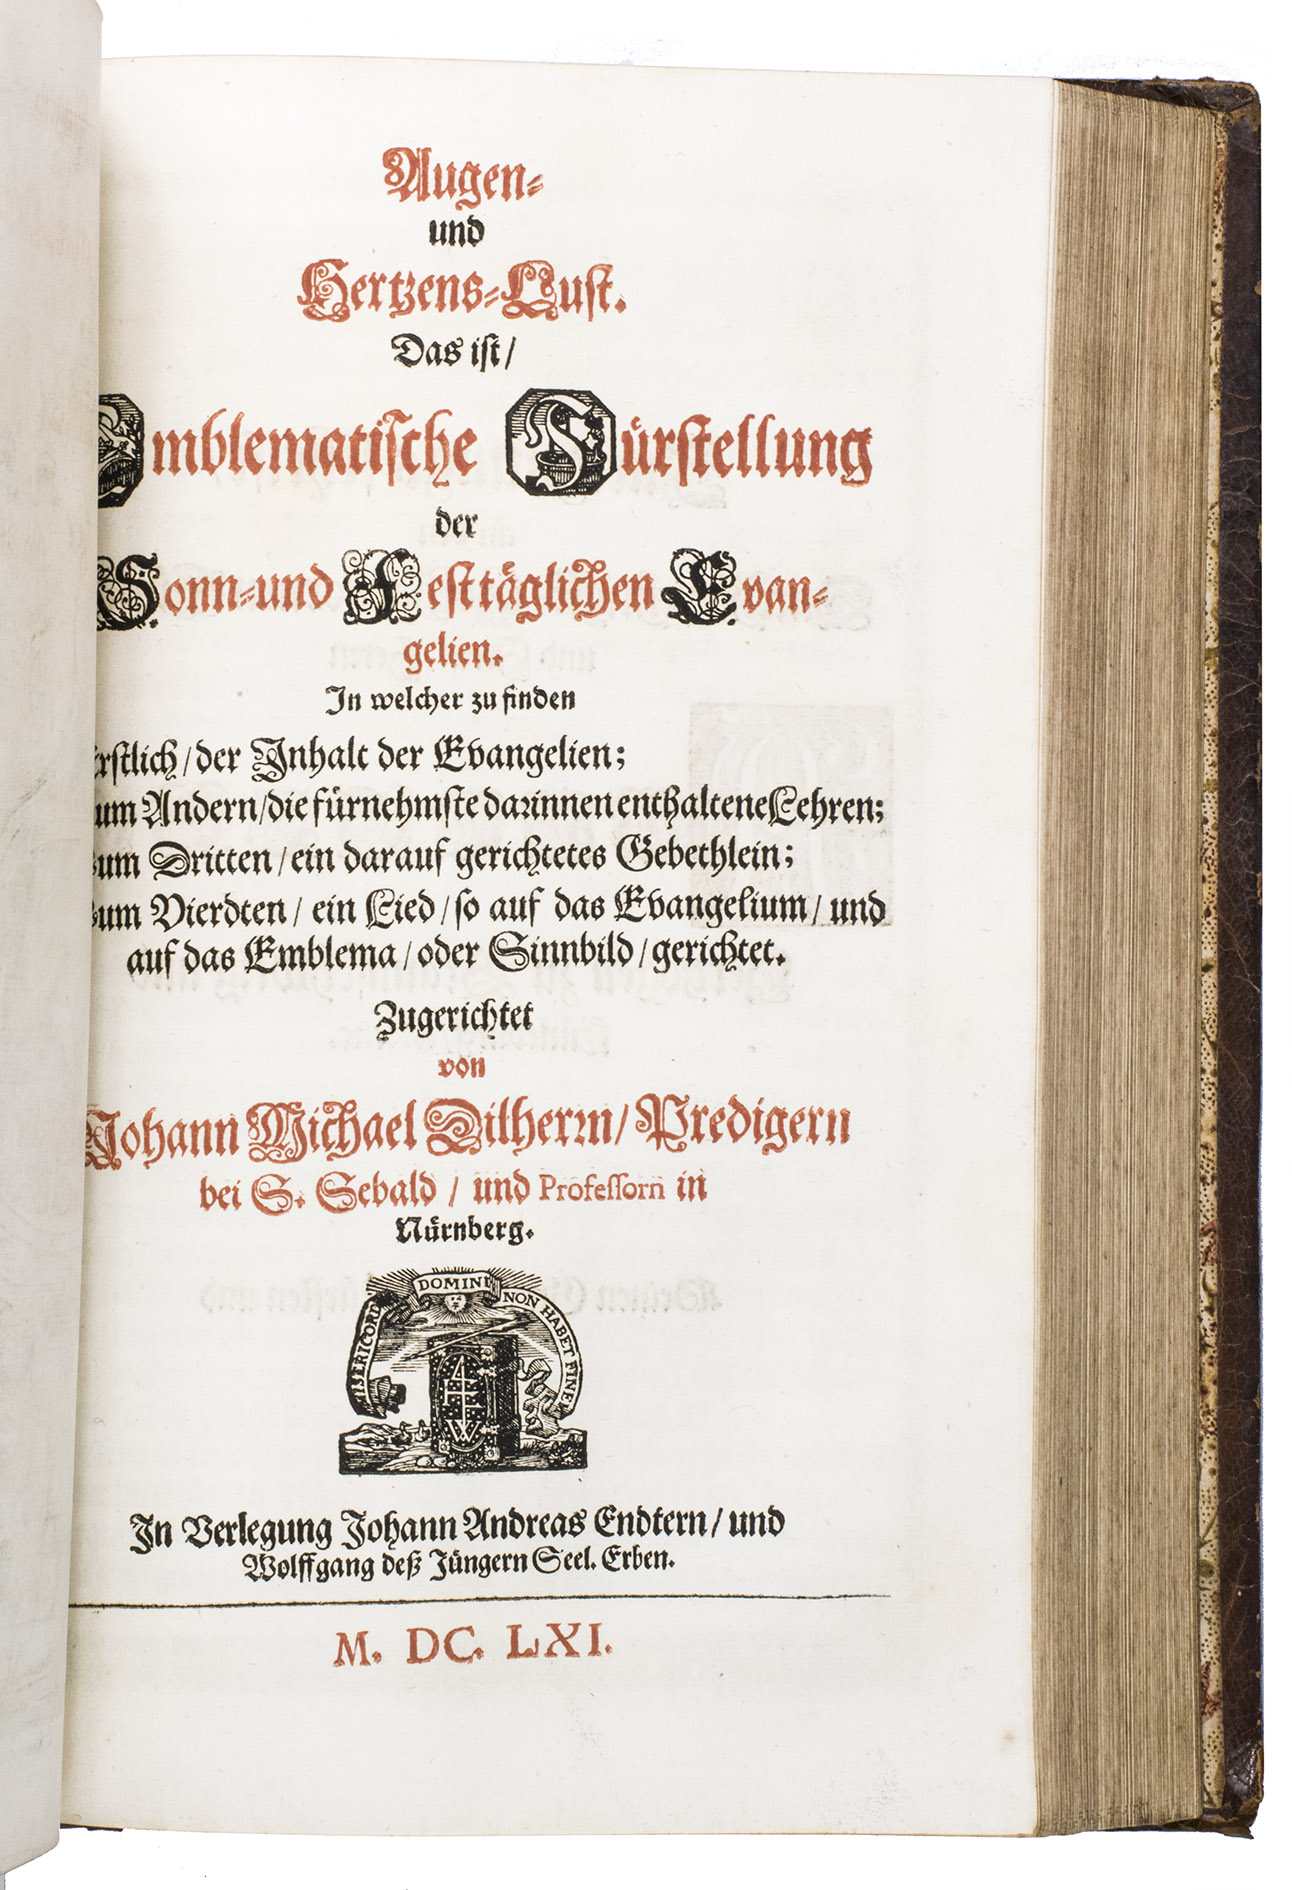 Augen-
und
Hertzens-Lust.
Das ist/
Emblematische Fürstellung
der
Sonn- und Festtäglichen Evan-
gelien.
In welcher zu finden
Erstlich/ der Inhalt der Evangelien;
Zum Andern/ die fürnehmste darinnen enthaltene Lehren;
Zum Dritten/ ein darauf gerichtetes Gebethlein;
Zum Vierdten/ ein Lied/ so auf das Evangelium/ und
auf das Emblema/ oder Sinnbild/ gerichtet.
Zugerichtet
von
Johann Michael Dilherrn/ Predigern
bei S. Sebald/ und Professorn in
Nürnberg.
MISERICORD DOMINI NON HABET FINEM
AEW
In Verlegung Johann Andreas Endtern/ und
Wolffgang deß Jüngern Seel. Erben.
M. DC. LXI.